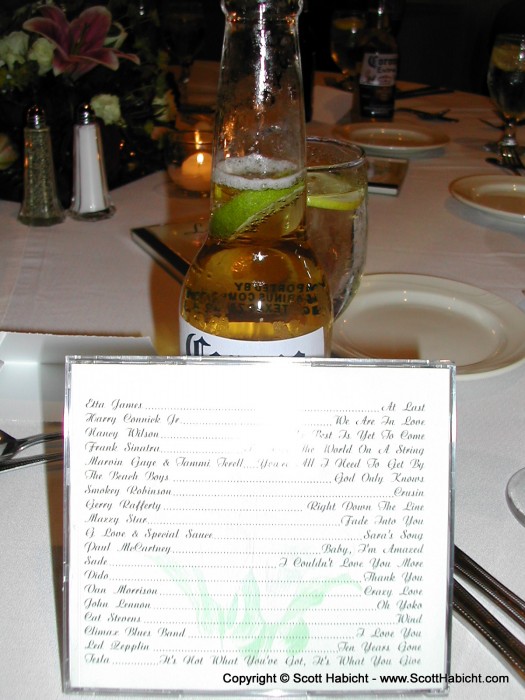 Corona
IMPORTED BY
Etta James At Last
Harry Connick Jr We Are In Love
Nancy Wilson Best Is Yet To Come
Frank Sinatra the World On A String
Marvin Gaye & Tammi Terell You're All I Need To Get By
The Beach Boys God Only Knows
Smokey Robinson Crusin
Gerry Rafferty Right Down The Line
Mazzy Star Fade Into You
G. Love & Special Sauce Sara's Song
Paul McCartney Baby, I'm Amazed
Sade I Couldn't Love You More
Dido Thank You
Van Morrison Crazy Love
John Lennon Oh Yoko
Cat Stevens Wind
Climax Blues Band I Love You
Led Zepplin Ten Years Gone
Tesla It's Not What You've Got, It's What You Give
Copyright © Scott Habicht - www.ScottHabicht.com